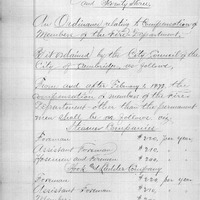 and Twenty three.
An Ordinance relating to Compensation of
Members of the Fire Department.
Be it ordained by the City Council of the
City of Cambridge, as follows:
From and after February 1, 1893, the
compensation of members of the Fire
Department other than the permanent
men shall be as follows viz
Steamer Companies
Foreman per year
Assistant Foreman
Hosemen and
Hook and Ladder Company
Foreman per year
Assistant Foreman
Members